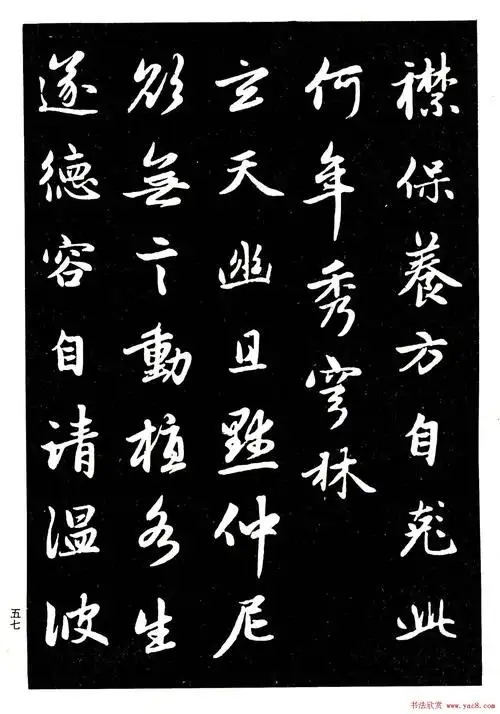 襟保養方自此
何年秀穹林
玄天幽且默仲尼
欲無言動植各生
遂德容自清温彼
五七
书法欣赏 www.yac8.com